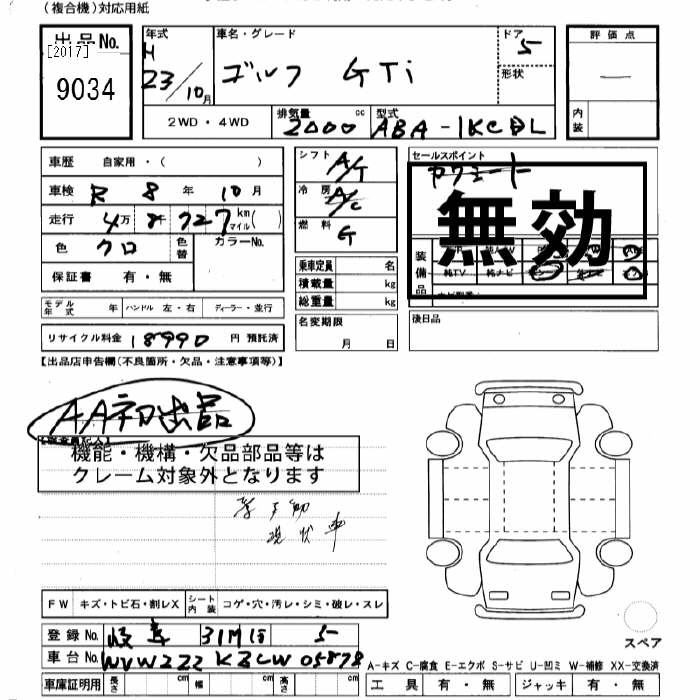 (複合機)対応用紙
出品No.
[2017]
9034
年式
H
23/10月
車名・グレード
ゴルフ GTi
ドア
5
形状
評価点
―
内装
2WD・4WD
排気量 2000 cc
型式 ABA-1KC
車歴 自家用・( )
車検 R 8 年 10 月
走行 4万 727 km マイル( )
色 クロ
色替
カラーNo.
保証書 有・無
モデル年式 年
ハンドル 左・右
ディーラー・並行
リサイクル料金 18990 円 預託済
シフト A/T
冷房 A/C
燃料 G
乗車定員 名
積載量 kg
総重量 kg
名変期限 月 日
セールスポイント
無効
装備品
純TV
純ナビ
後日品
【出品店申告欄(不良箇所・欠品・注意事項等)】
AA初出品
機能・機構・欠品部品等は
クレーム対象外となります
現状車
FW キズ・トビ石・割レX
シート内装 コゲ・穴・汚レ・シミ・破レ・スレ
登録No. 岐阜 5
車台No. WVWZZZ KZCW 05878
スペア
A-キズ C-腐食 E-エクボ S-サビ U-凹ミ W-補修 XX-交換済
車庫証明用 長さ cm 幅 cm 高さ cm
工具 有・無
ジャッキ 有・無